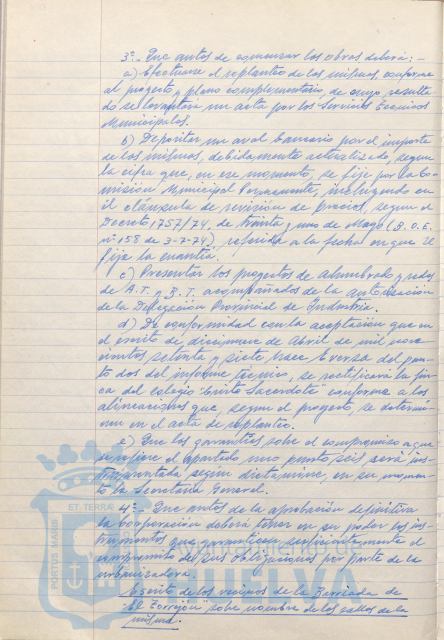 3º.- Que antes de comenzar las obras deberá:-
a) Efectuarse el replanteo de las mismas, conforme
al proyecto y plano complementario, de cuyo resulta
do se levantará un acta por los Servicios Técnicos
Municipales.
b) Depositar un aval bancario por el importe
de las mismas, debidamente actualizado, según
la cifra que, en ese momento, se fije por la Co-
misión Municipal Permanente, incluyendo en
él cláusula de revisión de precios, según el
Decreto 1757/74, de treinta y uno de Mayo (B.O.E.
nº 158 de 3-7-74), referida a la fecha en que se
fije la cuantía.
c) Presentar los proyectos de alumbrado y redes
de A.T. y B.T. acompañados de la autorización
de la Delegación Provincial de Industria.
d) De conformidad con la aceptación que en
el escrito de diecinueve de Abril de mil nove
cientos setenta y siete hace el versa del pun-
to dos del informe técnico, se rectificará la fin-
ca del colegio "Cristo Sacerdote" conforme a las
alineaciones que, según el proyecto, se determi-
nen en el acta de replanteo.
e) Que las garantías sobre el compromiso a que
se refiere el apartado uno punto seis será ins-
trumentada según dictamine, en su momen-
to la Secretaría General.
4º.- Que antes de la aprobación definitiva
la Corporación deberá tener en su poder los ins-
trumentos que garanticen suficientemente el
cumplimiento de sus obligaciones por parte de la
urbanizadora.
Escrito de los vecinos de la Barriada de
"El Torrejón" sobre nombre de las calles de la
misma.
ET TERRAE
PORTUS MARIS
Ayuntamiento de
HUELVA